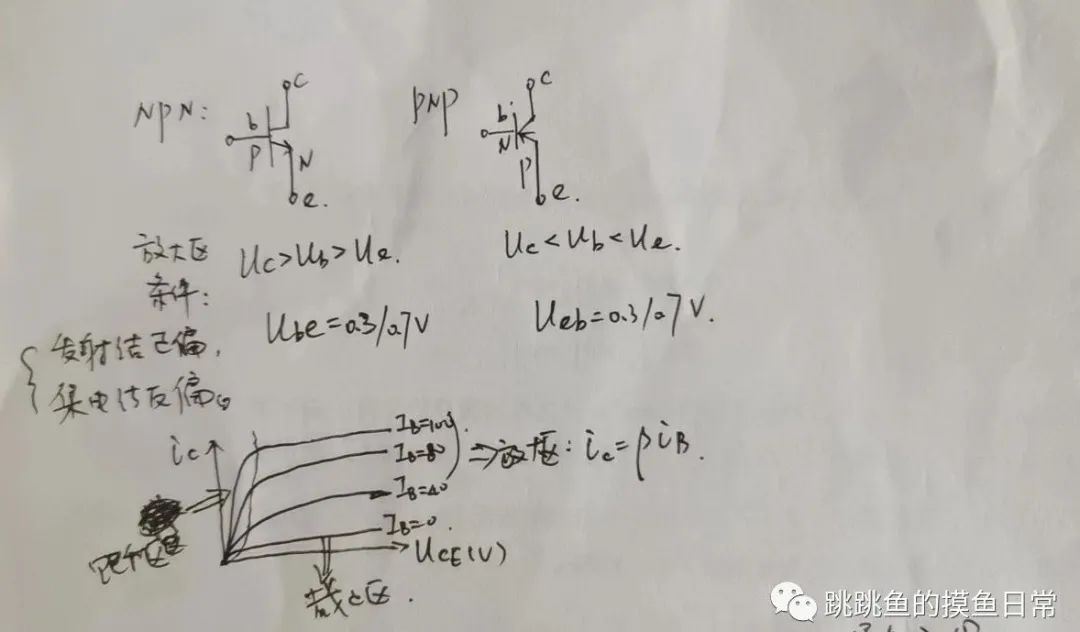 NPN:
b
c
P
N
e.
PNP
b
c
N
P
e.
放大区
条件:
Uc>Ub>Ue.
Uc<Ub<Ue.
Ube=0.3/0.7V
Ueb=0.3/0.7V.
发射结正偏,
集电结反偏。
ic
IB=100
IB=80
IB=40
IB=0.
=>放大区: ic=βiB.
饱和区
UCE(V)
截止区.
跳跳鱼的摸鱼日常